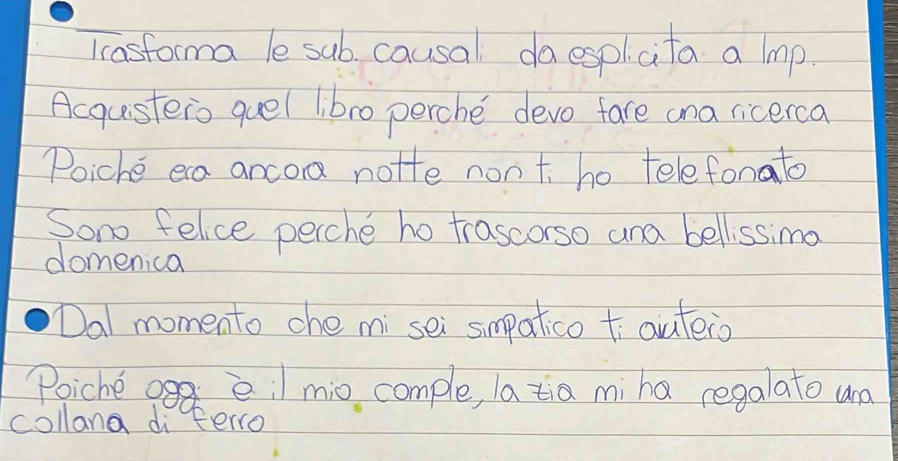 Trasforma le sub. causali da esplicita a Imp.
Acquisterò quel libro perché devo fare una ricerca
Poiché era ancora notte non ti ho telefonato
Sono felice perché ho trascorso una bellissima
domenica
Dal momento che mi sei simpatico ti aiuterò
Poiché oggi è il mio comple, la zia mi ha regalato una
collana di ferro